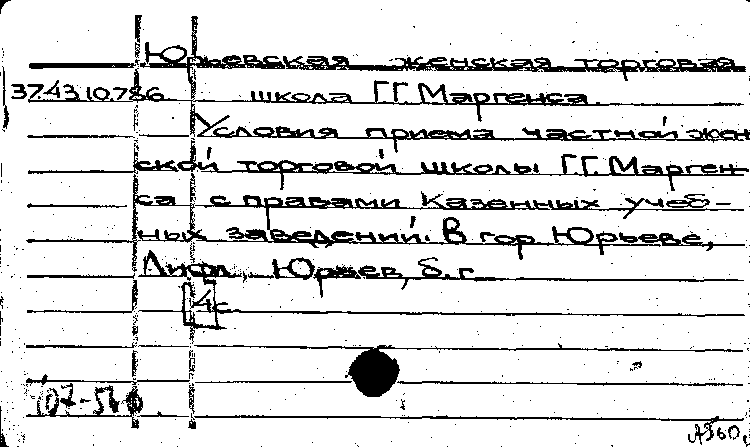 Юрьевская женская торговая
37.43 10.786 школа Г.Г. Маргенса.
Условия приема частной жен
ской торговой школы Г.Г. Марген-
са с правами казенных учеб-
ных заведений. В гор Юрьеве,
Лифл. Юрьев, б. г.
4с.